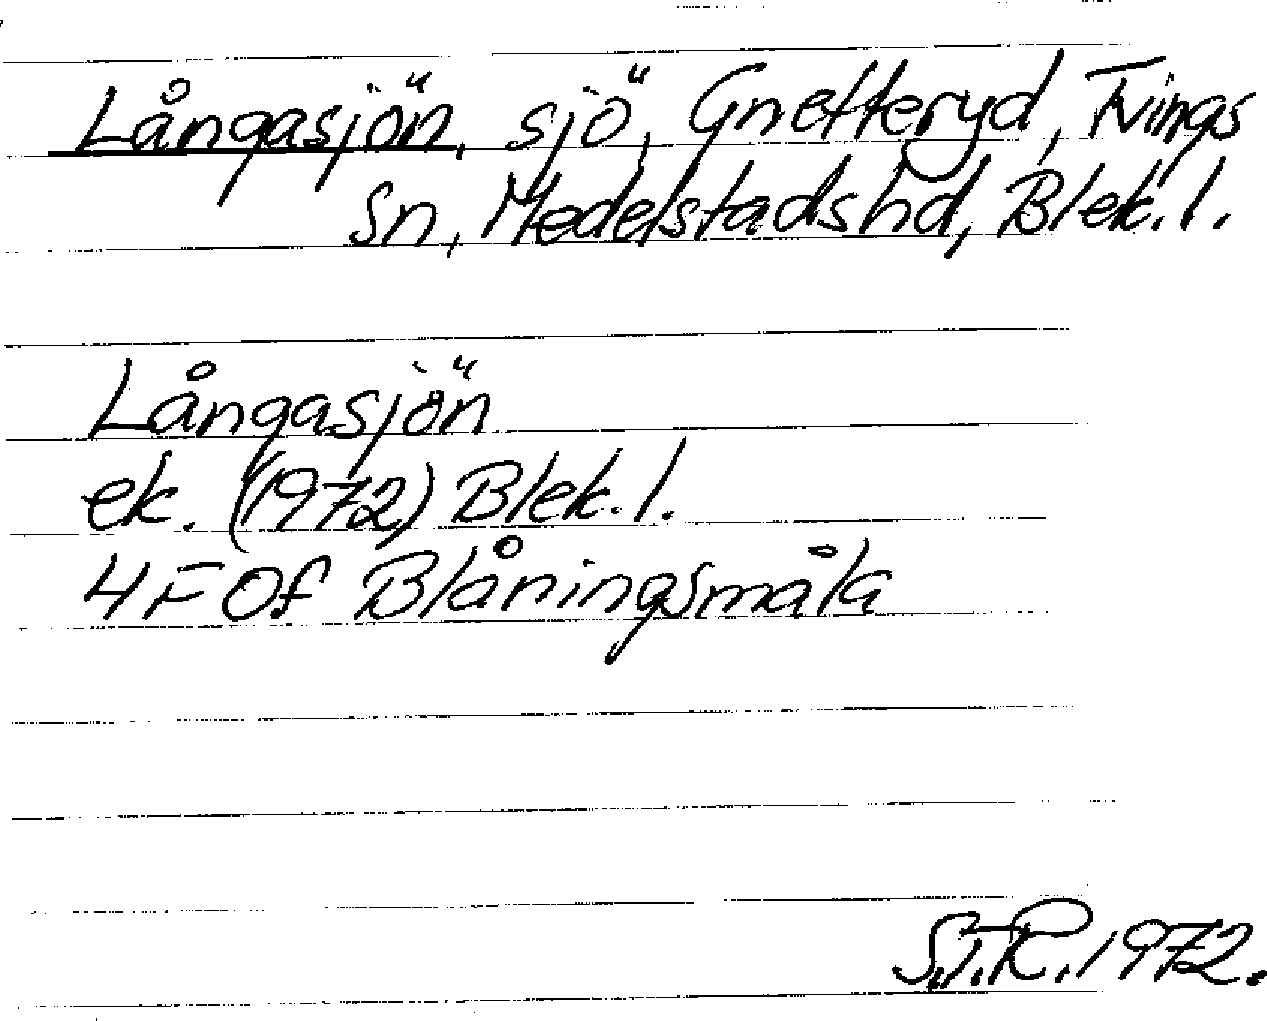 Långasjön, sjö, Gnetteryd, Tvings
Sn, Medelstads hd, Blek. l.
Långasjön
ek. (1972) Blek. l.
4F 0f Blåningsmåla
S.T.R. 1972.